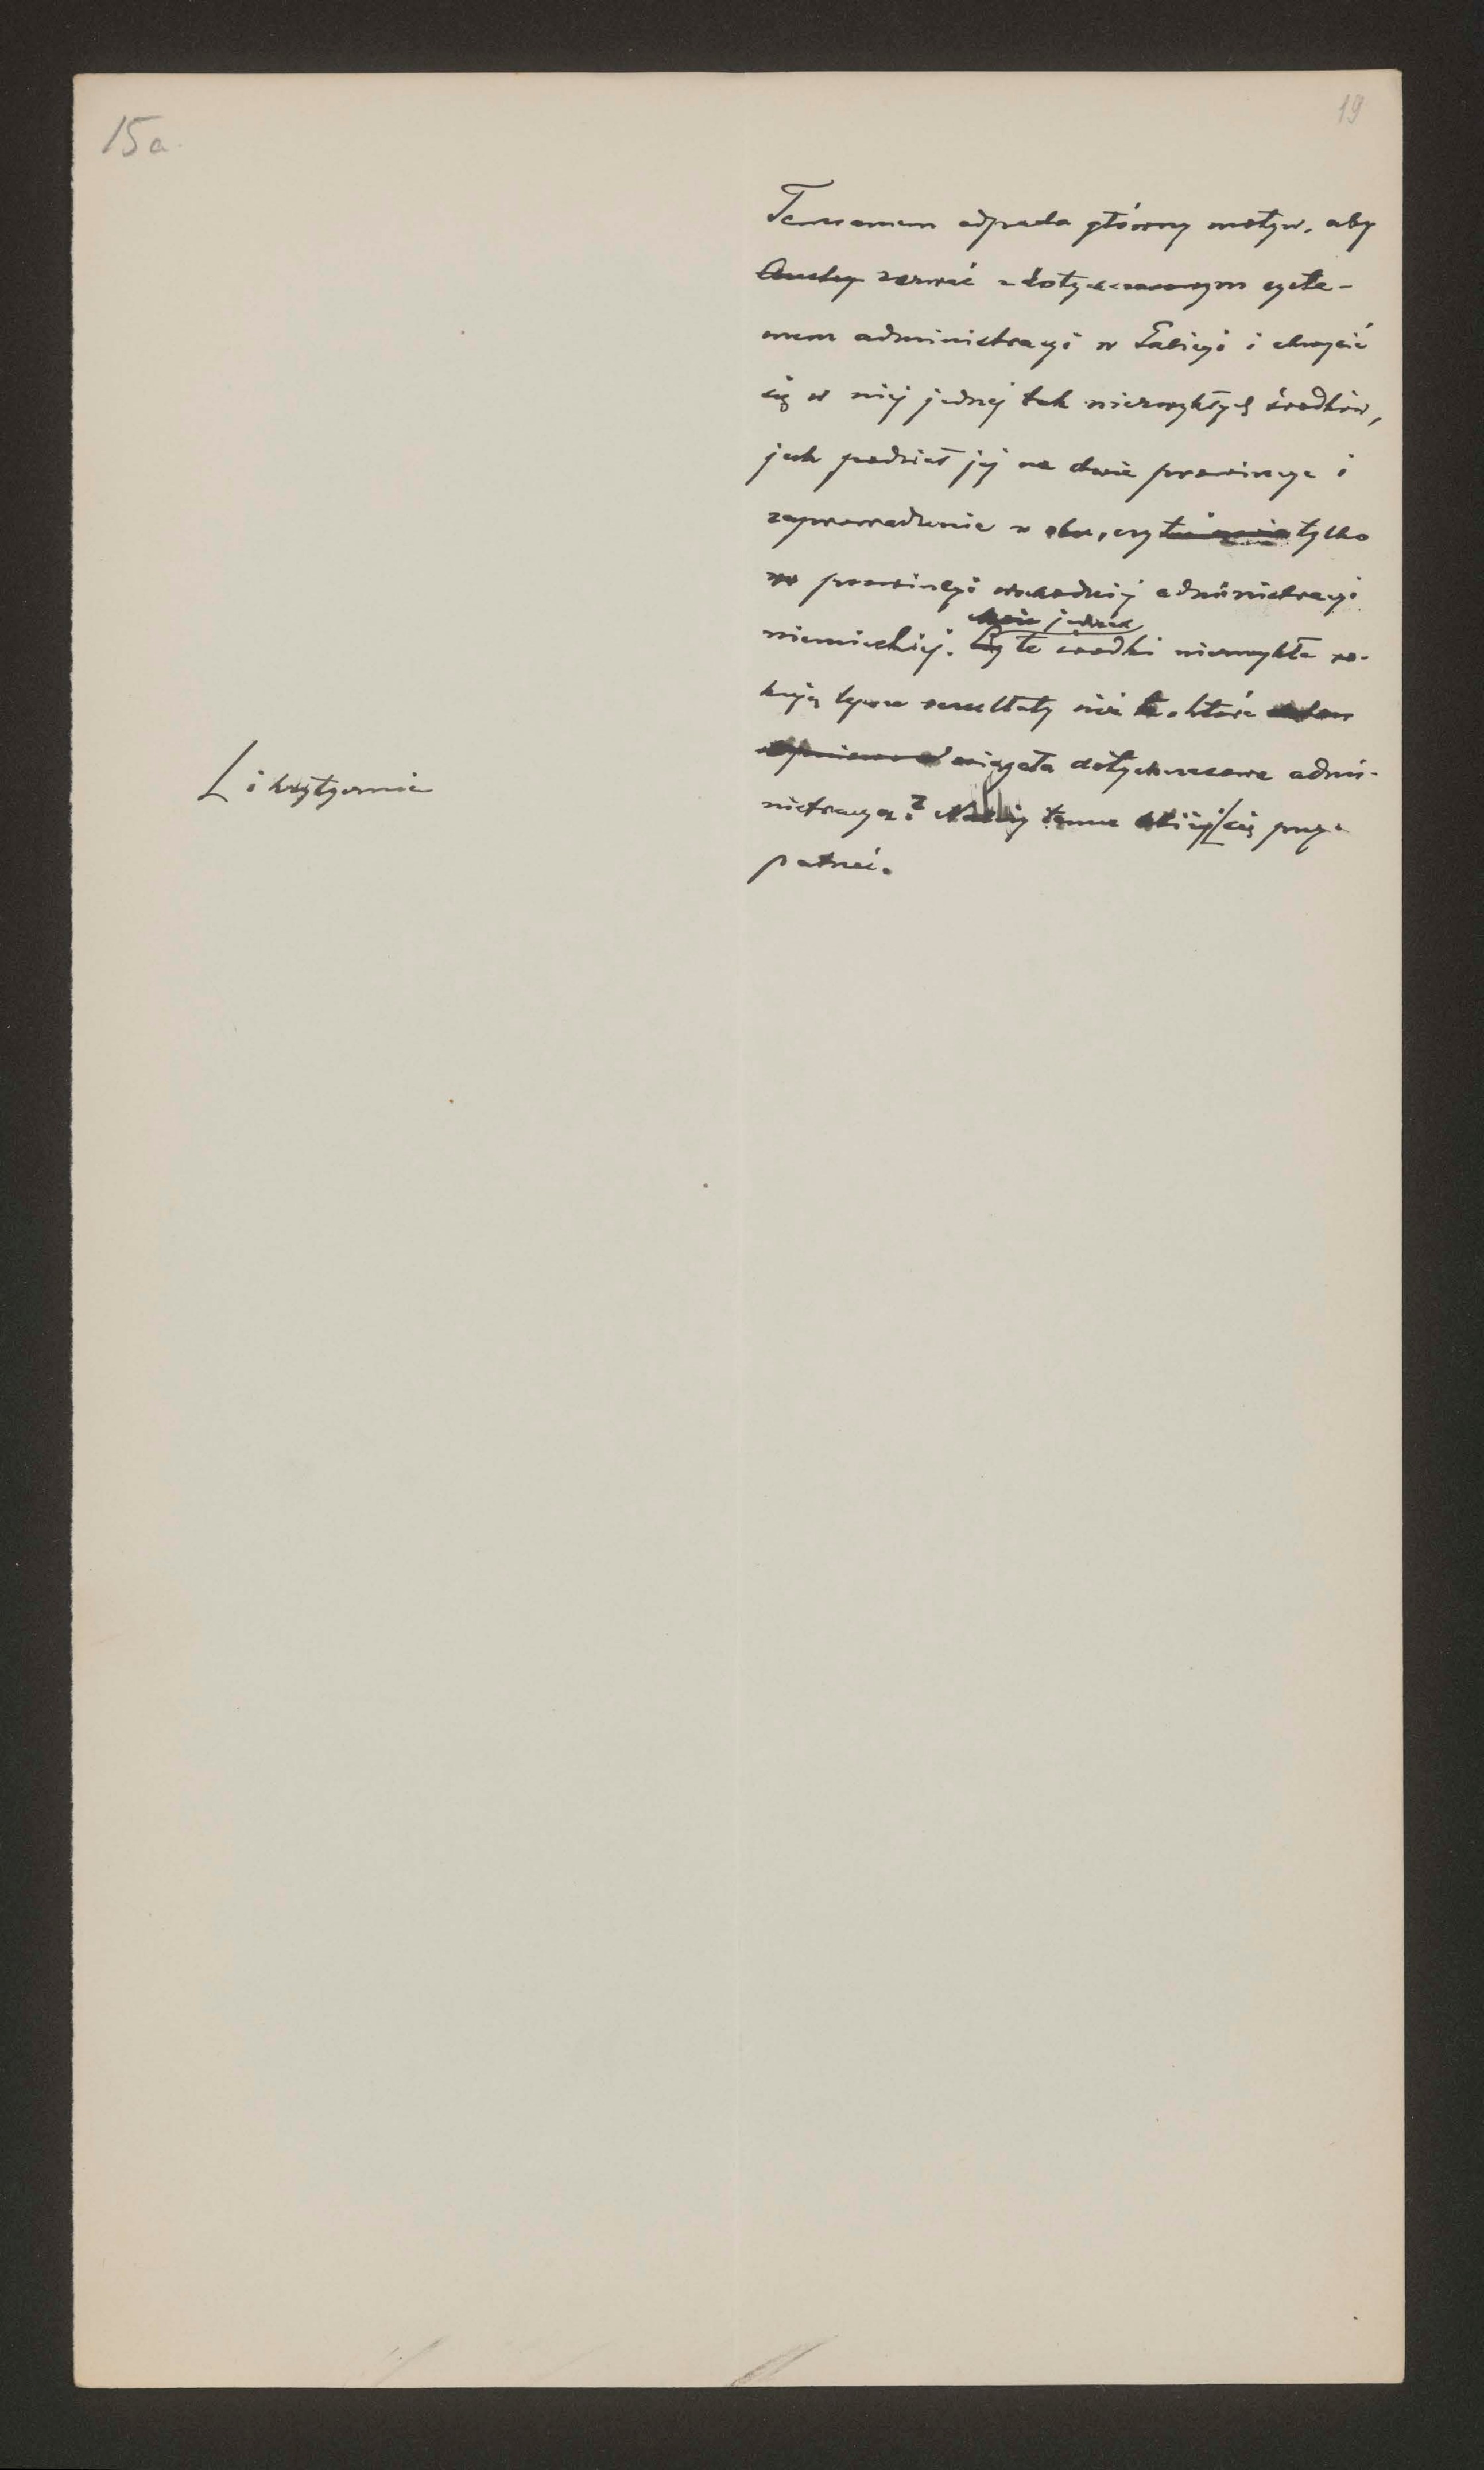 15a
19
Temsamem odpada główny motyw, aby
Austry zerwać z dotychczasowym syste-
mem administracyi w Galicyi i chwycić
się w niej jednej tak niezwykłych środków,
jak podział jej na dwie prowincye i
zaprowadzenie w obu, czy tylko
w prowincyi wschodniej administracyi
jednak
niemieckiej. Czy te środki niezwykłe ro-
kują lepsze rezultaty niż te, które
osiągała dotychczasowa admi-
nistracya? Należy temu bliżej się przy-
patrzeć.
i krytycznie